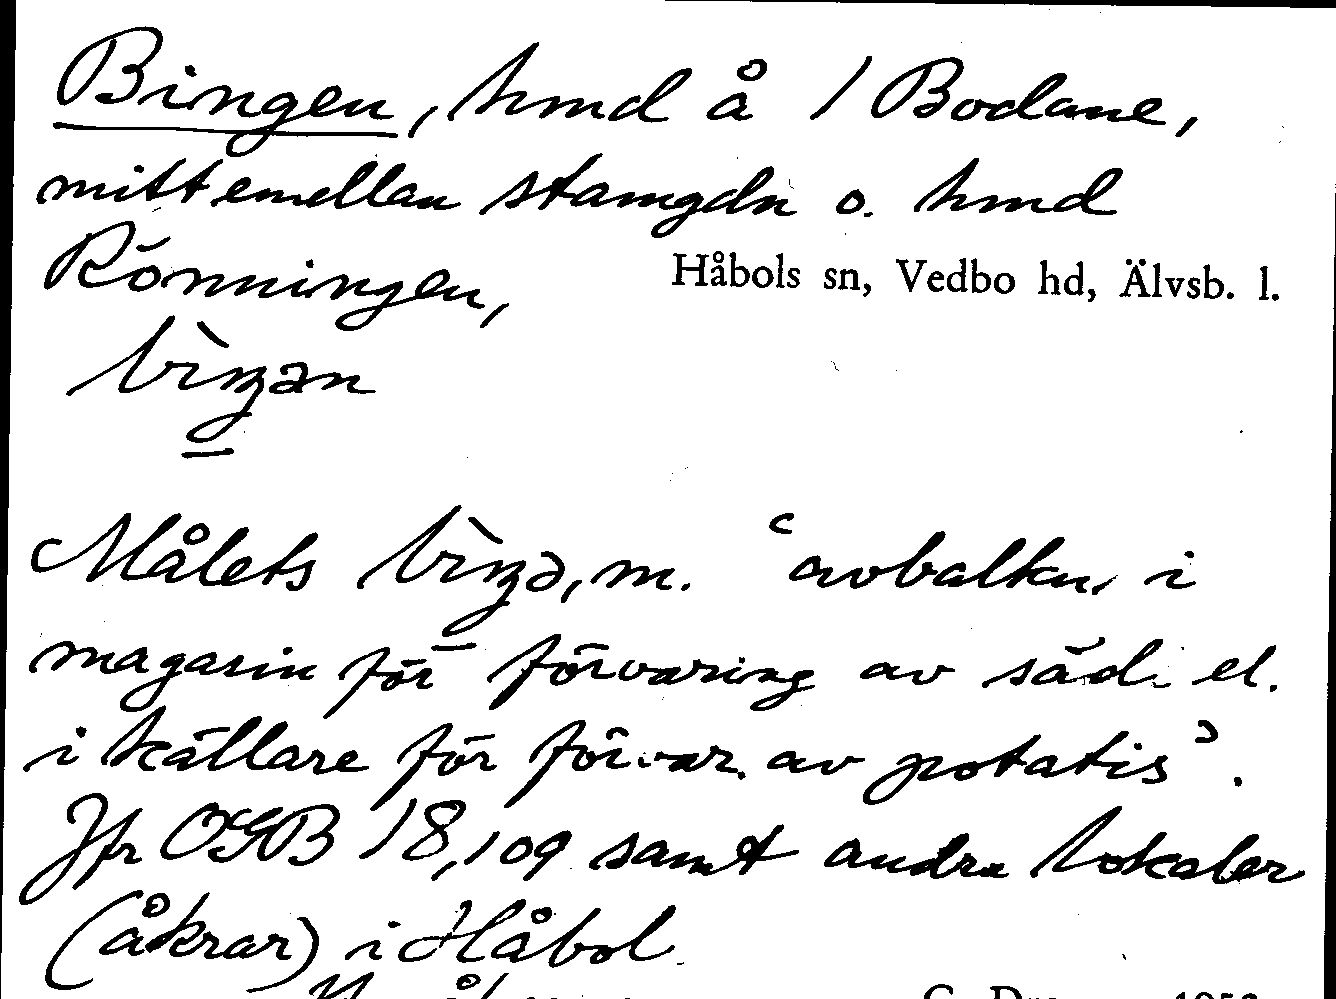 Bingen, hmd å 1 Bodane,
mittemellan stamgdn o. hmd
Rönningen,
Håbols sn, Vedbo hd, Älvsb. l.
bìŋən
Målets bìŋə, m. ‘avbalkn. i
magasin för förvaring av säd el.
i källare för förvar. av potatis’.
Jfr OGB 18,109 samt andra lokaler
(åkrar) i Håbol